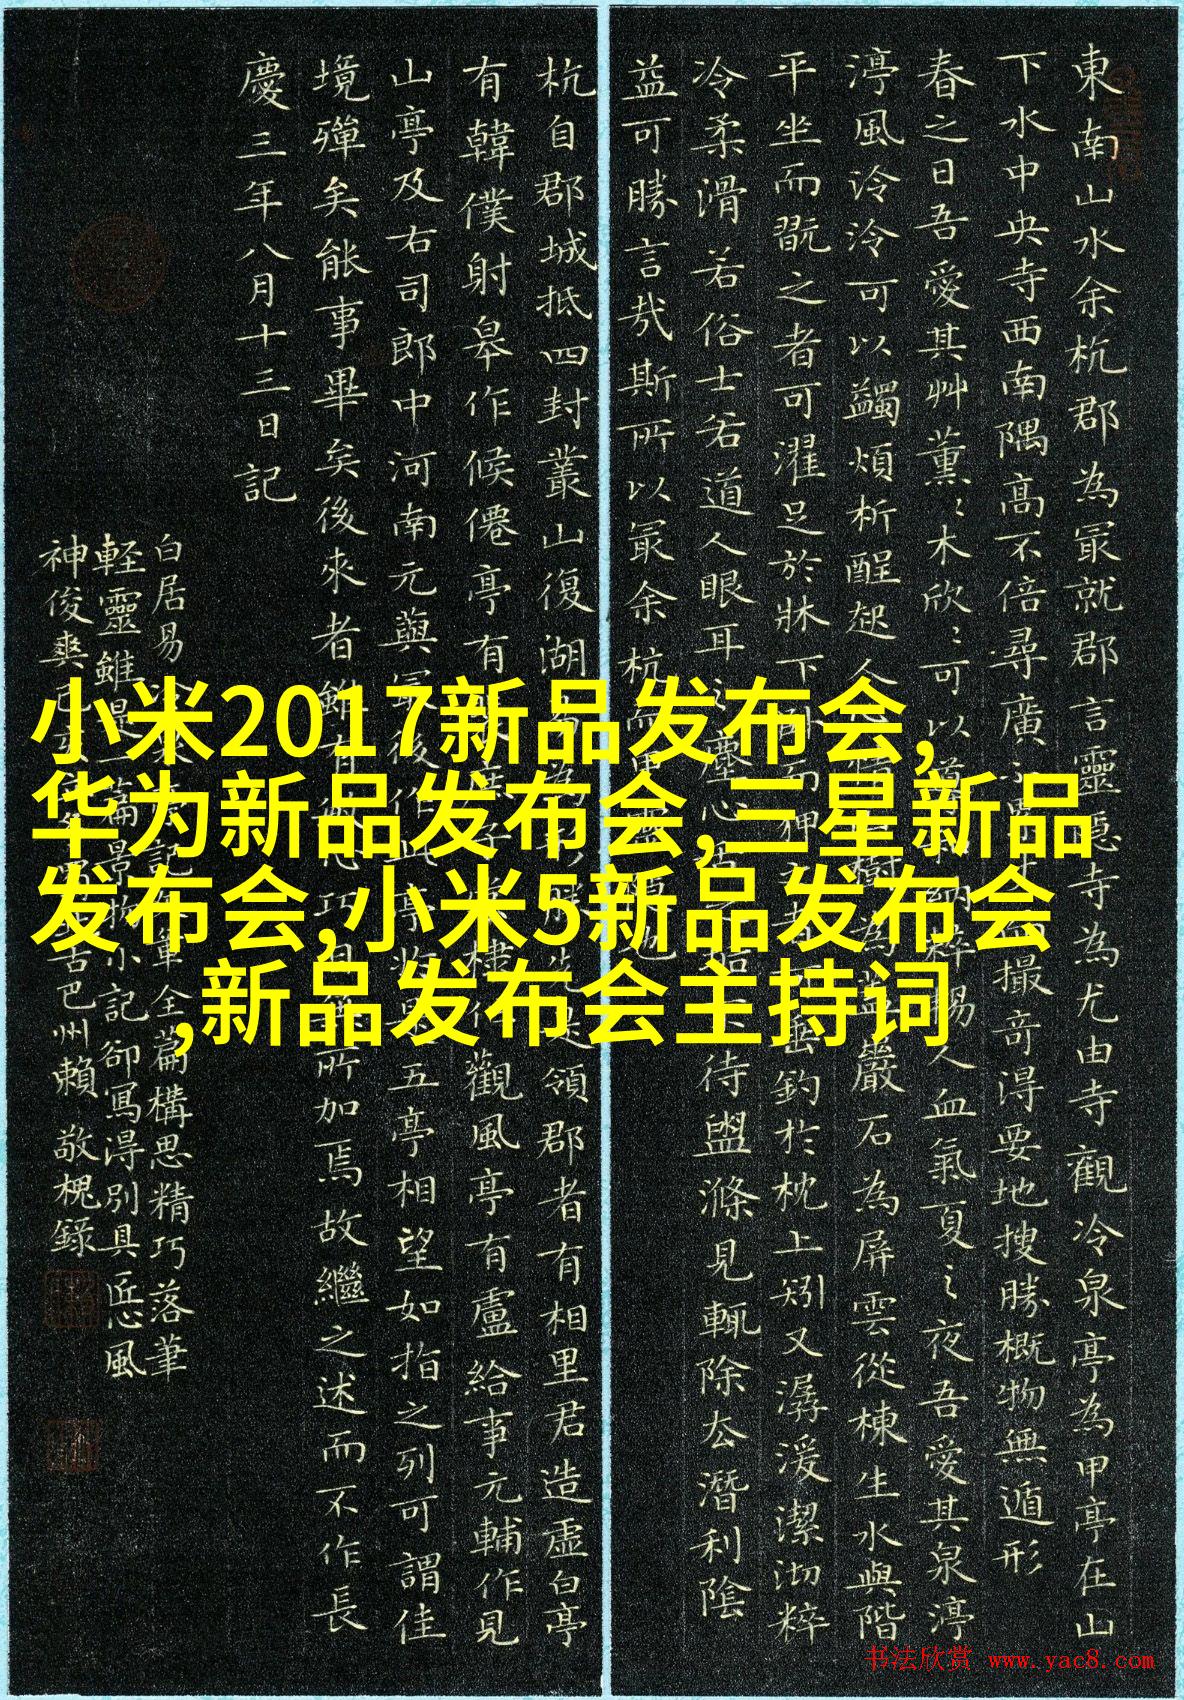 小米2017新品发布会,
华为新品发布会,三星新品
发布会,小米5新品发布会
,新品发布会主持词
東南山水余杭郡為冣就郡言靈隱寺為尤由寺觀冷泉亭為甲亭在山
下水中央寺西南隅高不倍尋廣撮奇得要地搜勝概物無遁形
春之日吾愛其艸薰〻木欣〻可以導納粹暢人血氣夏之夜吾愛其泉渟
渟風泠泠可以蠲煩析酲起人樹為蓋巖石為屏雲從棟生水與階
平坐而翫之者可濯足於牀下而狎垂釣於枕上矧又潺湲潔沏粹
冷柔滑若俗士若道人眼耳之塵心舌待盥滌見輒除去潛利陰
益可勝言哉斯所以冣余杭而甲靈隱也
杭自郡城抵四封叢山復湖易為形勝先是領郡者有相里君造虛白亭
有韓僕射皋作候僊亭有子棠棣作觀風亭有盧給事元輔作見
山亭及右司郎中河南元藇最後作此亭於是五亭相望如指之列可謂佳
境殫矣能事畢矣後來者雖有敏心巧目無所加焉故繼之述而不作長
慶三年八月十三日記
白居易記全篇構思精巧落筆
軽靈雖是一篇景物小記卻寫得別具匠心風
神俊爽古巴州賴敬槐錄
书法欣赏 www.yac8.com